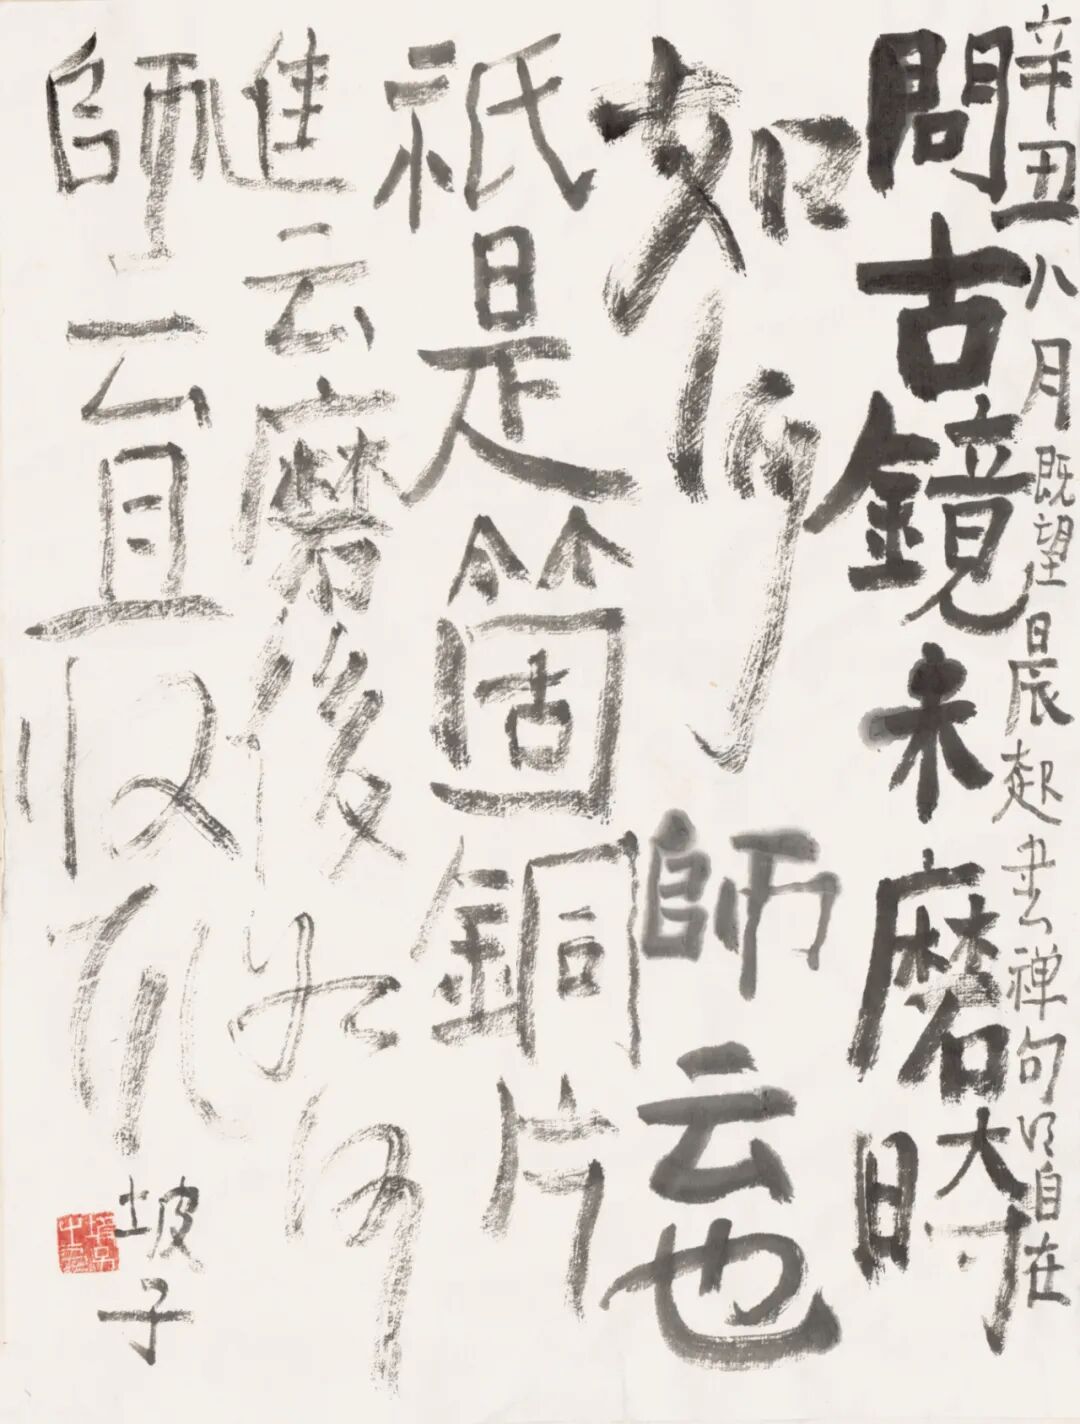 辛丑八月既望日晨起書禅句以自在
問古鏡未磨時
如何師云也
祇是箇銅片
進云磨後如何
師云且收取
坡子